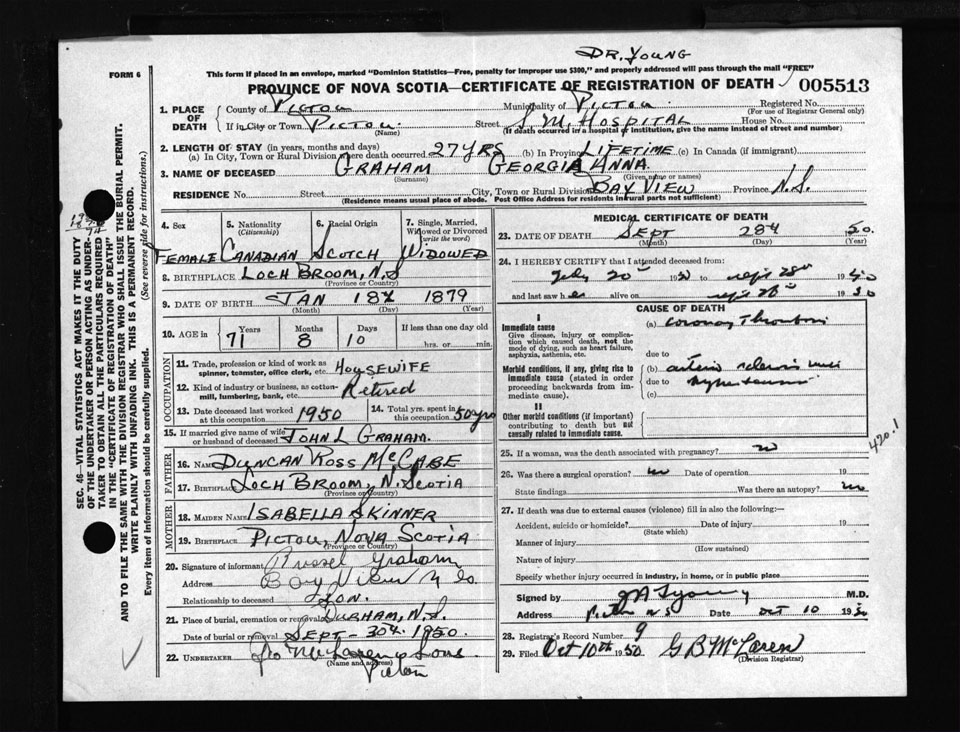 DR. YOUNG
FORM 6
This form if placed in an envelope, marked "Dominion Statistics—Free, penalty for improper use $300," and properly addressed will pass through the mail "FREE"
PROVINCE OF NOVA SCOTIA—CERTIFICATE OF REGISTRATION OF DEATH 005513
1. PLACE OF DEATH
County of PICTOU Municipality of PICTOU Registered No.
(For use of Registrar General only)
If in City or Town PICTOU. Street S. M. HOSPITAL House No.
(Name) (If death occurred in a hospital or institution, give the name instead of street and number)
2. LENGTH OF STAY (in years, months and days)
(a) In City, Town or Rural Division where death occurred 27 YRS (b) In Province LIFETIME (c) In Canada (if immigrant)
3. NAME OF DECEASED GRAHAM GEORGIA ANNA
(Surname) (Given name or names)
RESIDENCE No. Street City, Town or Rural Division BAY VIEW Province N.S.
(Residence means usual place of abode. Post Office Address for residents in rural parts not sufficient)
SEC. 46—VITAL STATISTICS ACT MAKES IT THE DUTY
OF THE UNDERTAKER OR PERSON ACTING AS UNDER-
TAKER TO OBTAIN ALL THE PARTICULARS REQUIRED
IN THE "CERTIFICATE OF REGISTRATION OF DEATH"
AND TO FILE THE SAME WITH THE DIVISION REGISTRAR WHO SHALL ISSUE THE BURIAL PERMIT.
WRITE PLAINLY WITH UNFADING INK. THIS IS A PERMANENT RECORD.
Every item of information should be carefully supplied. (See reverse side for instructions.)
4. Sex 5. Nationality (Citizenship) 6. Racial Origin 7. Single, Married, Widowed or Divorced (write the word)
FEMALE CANADIAN SCOTCH WIDOWED
8. BIRTHPLACE LOCH BROOM, N.S
(Province or Country)
9. DATE OF BIRTH JAN 18th 1879
(Month) (Day) (Year)
10. AGE in Years Months Days If less than one day old
71 8 10 hrs. or min.
OCCUPATION
11. Trade, profession or kind of work as spinner, teamster, office clerk, etc. HOUSEWIFE
12. Kind of industry or business, as cotton-mill, lumbering, bank, etc. Retired
13. Date deceased last worked at this occupation 1950 14. Total yrs. spent in this occupation 50 yrs
15. If married give name of wife or husband of deceased JOHN L GRAHAM.
FATHER
16. NAME DUNCAN ROSS McCABE
17. BIRTHPLACE LOCH BROOM, N. SCOTIA
(Province or Country)
MOTHER
18. MAIDEN NAME ISABELLA SKINNER
19. BIRTHPLACE PICTOU, NOVA SCOTIA
(Province or Country)
20. Signature of informant Russel Graham
Address Bay View
Relationship to deceased Son.
21. Place of burial, cremation or removal DURHAM, N.S.
Date of burial or removal SEPT - 30th 1950.
22. UNDERTAKER McLaren & Sons
(Name and address)
Pictou
MEDICAL CERTIFICATE OF DEATH
23. DATE OF DEATH SEPT 28th 50.
(Month) (Day) (Year)
24. I HEREBY CERTIFY that I attended deceased from:
July 20 1950 to Sept 28th 1950
and last saw her alive on Sept 28th 1950
CAUSE OF DEATH
I
Immediate cause
Give disease, injury or complication which caused death, not the mode of dying, such as heart failure, asphyxia, asthenia, etc.
(a) Coronary Thrombosis
due to
Morbid conditions, if any, giving rise to immediate cause (stated in order proceeding backwards from immediate cause).
(b) arterio sclerosis with
due to
(c)
II
Other morbid conditions (if important) contributing to death but not causally related to immediate cause.
420.1
25. If a woman, was the death associated with pregnancy? no
26. Was there a surgical operation? no Date of operation 19
State findings Was there an autopsy? no
27. If death was due to external causes (violence) fill in also the following:—
Accident, suicide or homicide? Date of injury 19
(State which)
Manner of injury
(How sustained)
Nature of injury
Specify whether injury occurred in industry, in home, or in public place
Signed by Young M.D.
Address Pictou N S Date Oct 10 1950
28. Registrar's Record Number 9
29. Filed Oct 10th 1950 G B McLaren
(Division Registrar)